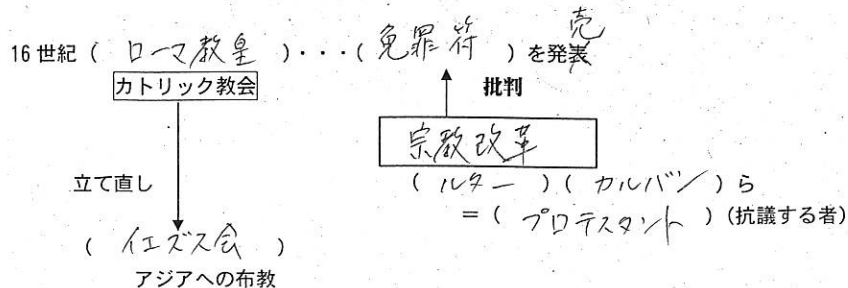 16世紀（ ローマ教皇 ）・・・（ 免罪符 ）を発表
売
カトリック教会
批判
宗教改革
立て直し
（ ルター ）（ カルバン ）ら
＝（ プロテスタント ）（抗議する者）
（ イエズス会 ）
アジアへの布教